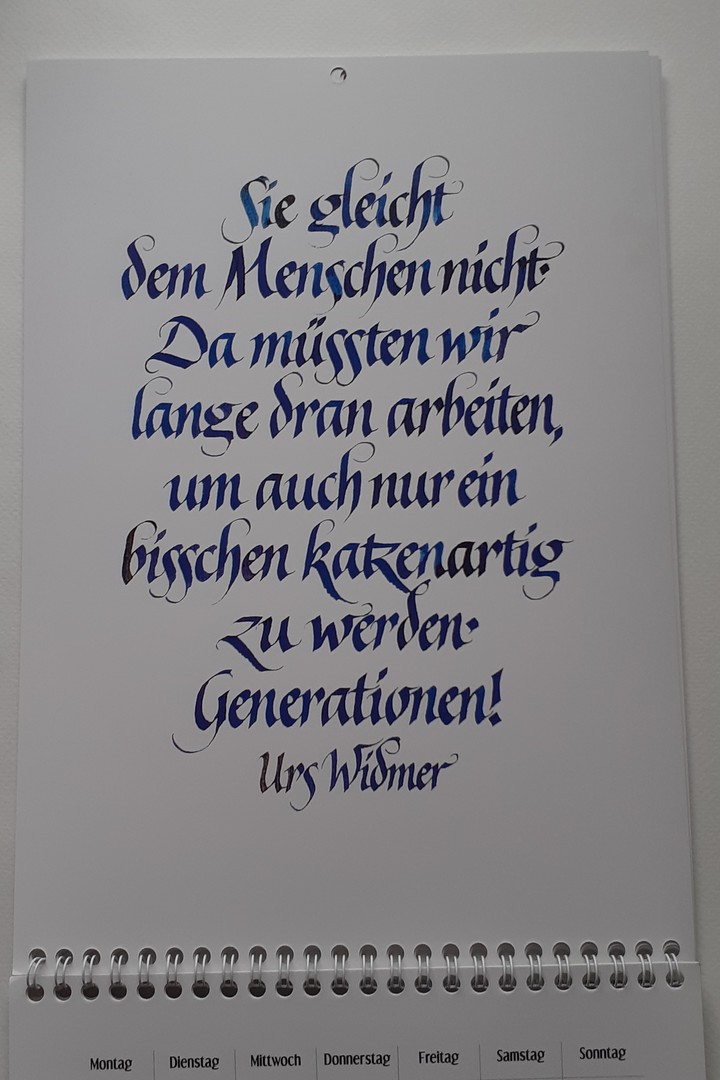 Sie gleicht
dem Menschen nicht.
Da müssten wir
lange dran arbeiten,
um auch nur ein
bisschen katzenartig
zu werden.
Generationen!
Urs Widmer
Montag Dienstag Mittwoch Donnerstag Freitag Samstag Sonntag